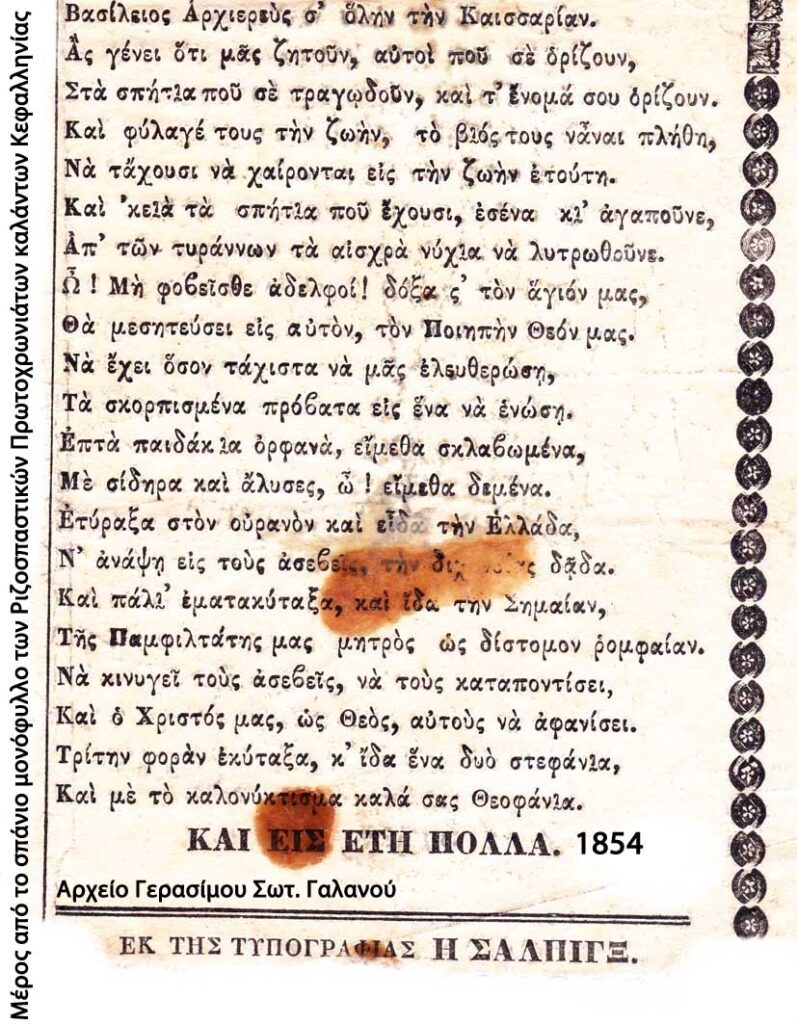 Βασίλειος Ἀρχιερεὺς σ' ὅλην τὴν Καισσαρίαν.
Ἂς γένει ὅτι μᾶς ζητοῦν, αὐτοὶ ποῦ σὲ ὁρίζουν,
Στὰ σπήτια ποῦ σὲ τραγῳδοῦν, καὶ τ' ὄνομά σου ὁρίζουν.
Καὶ φύλαγέ τους τὴν ζωὴν, τὸ βιός τους νἆναι πλήθη,
Νὰ τἄχουσι νὰ χαίρονται εἰς τὴν ζωὴν ἐτούτη.
Καὶ 'κειὰ τὰ σπήτια ποῦ ἔχουσι, ἐσένα κι' ἀγαποῦνε,
Ἀπ' τῶν τυράννων τὰ αἰσχρὰ νύχια νὰ λυτρωθοῦνε.
Ὦ ! Μὴ φοβεῖσθε ἀδελφοί! δόξα ς' τὸν ἅγιόν μας,
Θὰ μεσητεύσει εἰς αὐτὸν, τὸν Ποιητὴν Θεόν μας.
Νὰ ἔχει ὅσον τάχιστα νὰ μᾶς ἐλευθερώσῃ,
Τὰ σκορπισμένα πρόβατα εἰς ἕνα νὰ ἑνώσῃ.
Ἑπτὰ παιδάκια ὀρφανὰ, εἴμεθα σκλαβωμένα,
Μὲ σίδηρα καὶ ἄλυσες, ὦ ! εἴμεθα δεμένα.
Ἐτύραξα στὸν οὐρανὸν καὶ εἶδα τὴν Ἑλλάδα,
Ν' ἀνάψῃ εἰς τοὺς ἀσεβεῖς, τὴν δᾷδα.
Καὶ πάλι' ἐματακύταξα, καὶ ἴδα τὴν Σημαίαν,
Τῆς Παμφιλτάτης μας μητρὸς ὡς δίστομον ῥομφαίαν.
Νὰ κινυγεῖ τοὺς ἀσεβεῖς, νὰ τοὺς καταποντίσει,
Καὶ ὁ Χριστός μας, ὡς Θεὸς, αὐτοὺς νὰ ἀφανίσει.
Τρίτην φορὰν ἐκύταξα, κ' ἴδα ἕνα δυὸ στεφάνια,
Καὶ μὲ τὸ καλονύκτισμα καλά σας Θεοφάνια.
ΚΑΙ ΕΙΣ ΕΤΗ ΠΟΛΛΑ. 1854
Αρχείο Γερασίμου Σωτ. Γαλανού
ΕΚ ΤΗΣ ΤΥΠΟΓΡΑΦΙΑΣ Η ΣΑΛΠΙΓΞ.
Μέρος από το σπάνιο μονόφυλλο των Ριζοσπαστικών Πρωτοχρωνιάτων καλάντων Κεφαλληνίας